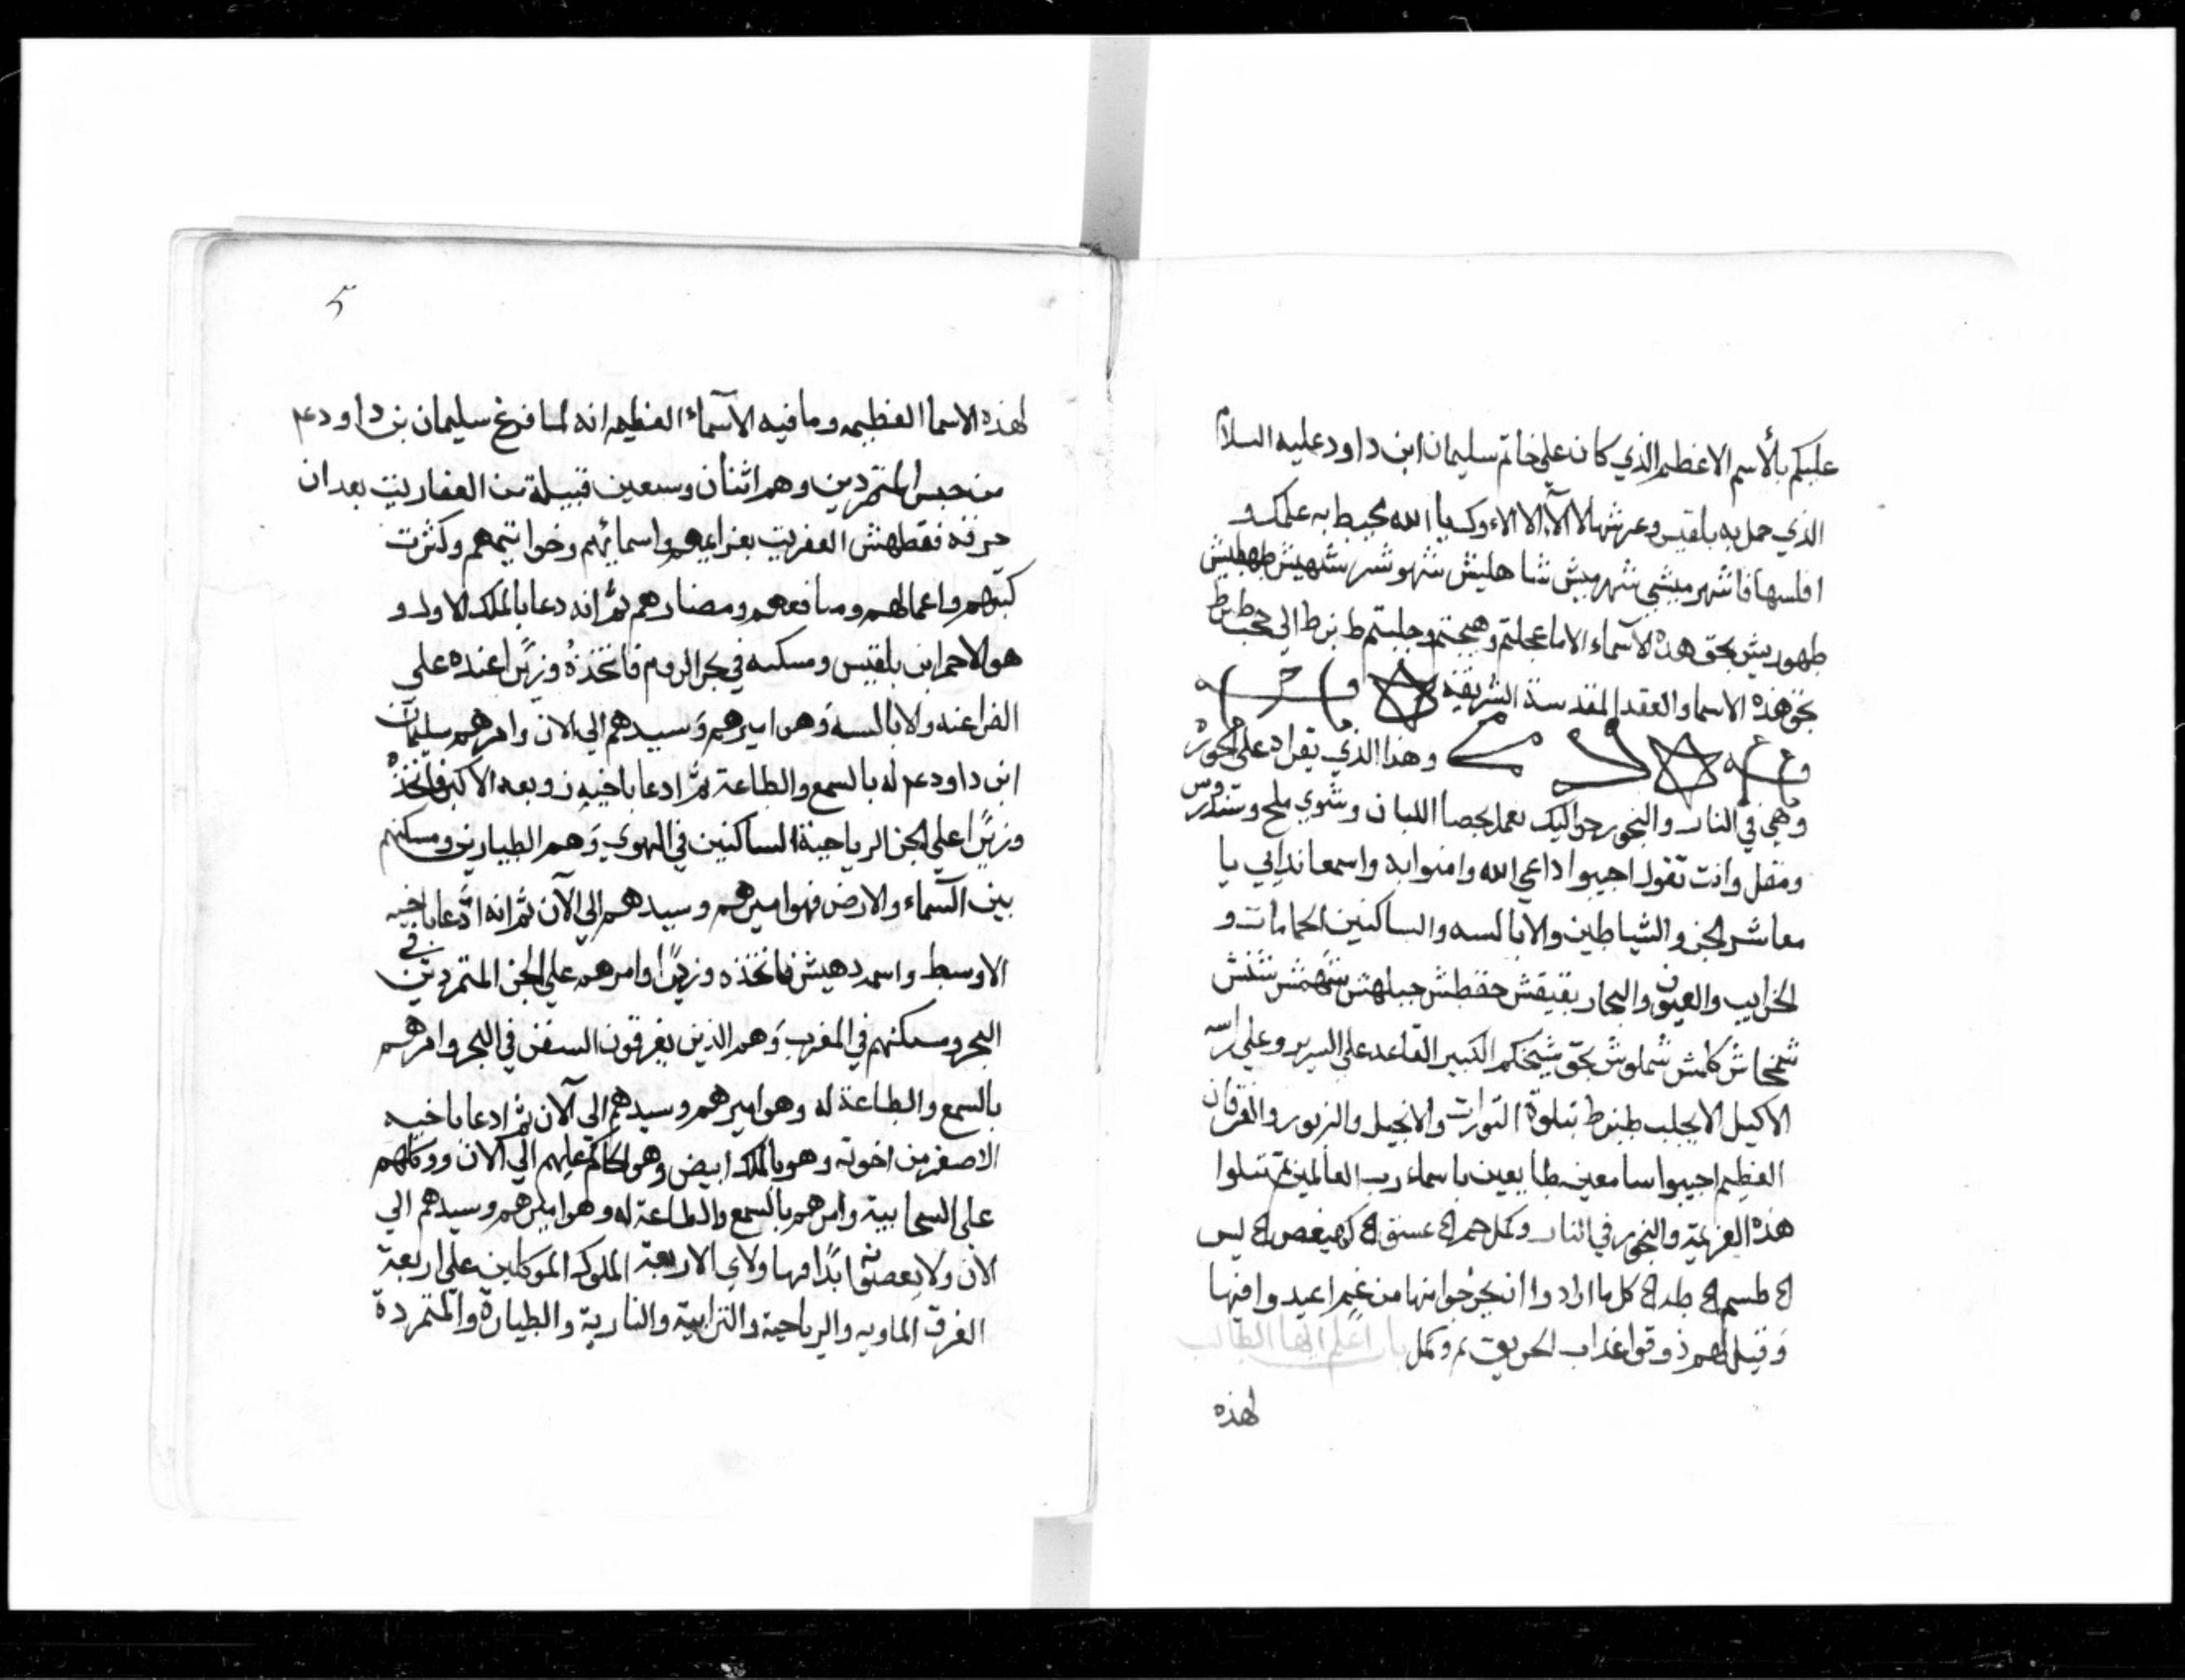 عليكم بالأسم الاعظم الذي كان علي خاتم سليمان ابن داود عليه السلام
الذي حمل به بلقيس وعرشها الا الآء الا الاء وكـ يا الله يحيط به علمك و
افلسها فا شهر ميشي شهر ميش شا هليش شهو شر شهيش طهطيش
طهوريش بحق هذه الآسماء الا ما عجلتم وهيجتم وجلبتم ط نرط الي
بحق هذه الاسما والعقد المقدسة الشريفة
وهذا الذي يقراد علي البخور
وهي في النار والبخور حواليك بعمل حصا اللبان وشوي ملح وسندروس
ومقل وانت تقول اجيبوا داعي الله وامنوا به واسمعا ندايي يا
معاشر الجن والشياطين والابالسه والساكنين الحمامات و
الخرايب والعيون والبحار بقيقش حفطش جبلهش شهمش شنش
شمخاش كلمش شملوش بحق شيخكم الكبير القاعد علي السرير وعلي راسه
الاكيل الا يجلب طنرط بتلوة التورات والانجيل والزبور والفرقان
العظيم اجيبوا سامعين طايعين باسماء رب العالمين ثم تتلوا
هذه العزيمة والبخور في النار وكل حم ۞ عسق ۞ كهيعص ۞ يس
۞ طسم ۞ طه ۞ كل ما ارادوا ان يخرجوا منها من غم اعيدوا فيها
وقيل لهم ذوقوا عذاب الحريق تم وكمل باب اعلم ايها الطالب
لهذه
5
لهذه الاسما العظيمه وما فيه الآسماء العظيمه انه لما فرغ سليمان بن داود عم
من حبس المتمردين وهم اثنان وسبعين قبيلة من العفاريت بعد ان
حرفه فقطهش العفريت بعزايمهم واسمائهم وخواتيمهم وكثرت
كتبهم واعمالهم ومنافعهم ومضارهم ثم انه دعا بالملك الاول و
هو الاحمر ابن بلقيس ومسكنه في بحر الروم فاتخذهُ وزيًرا عنده علي
الفراعنه والابالسه وَهو اميرهم وَسيدهم الي الان وامرهم سليمان
ابن داود عم له بالسمع والطاعة ثم ادعا باخيه زوبعه الاكبر فاتخذه
وزيرًا علي الجن الرياحية الساكنين في الهوي وَهم الطيارين ومسكنهم
بين السماء والارض فهو اميرهم وسيدهم الي الآن ثم انه ادَّعا باخيه
الاوسط واسمه دهيش فاتخذه وزيرًا وامرهم علي الجن المتمردين في
البحر ومسكنهم في المغرب وَهم الذين يغرقون السفن في البحر وامرهم
بالسمع والطاعة له وهو اميرهم وسيدهم الي الآن ثم ادعا باخيه
الاصغر من اخوته وهو بالملك ابيض وهو الحاكم عليهم الي الان ووكلهم
علي السحابية وامرهم بالسمع والطاعة له وهو اميرهم وسيدهم الي
الان ولا يعصوا ابدًا فها ولاي الاربعة الملوك الموكلين علي اربعة
الفرق الماويه والرياحية والترابية والنارية والطيارة والمتمردة